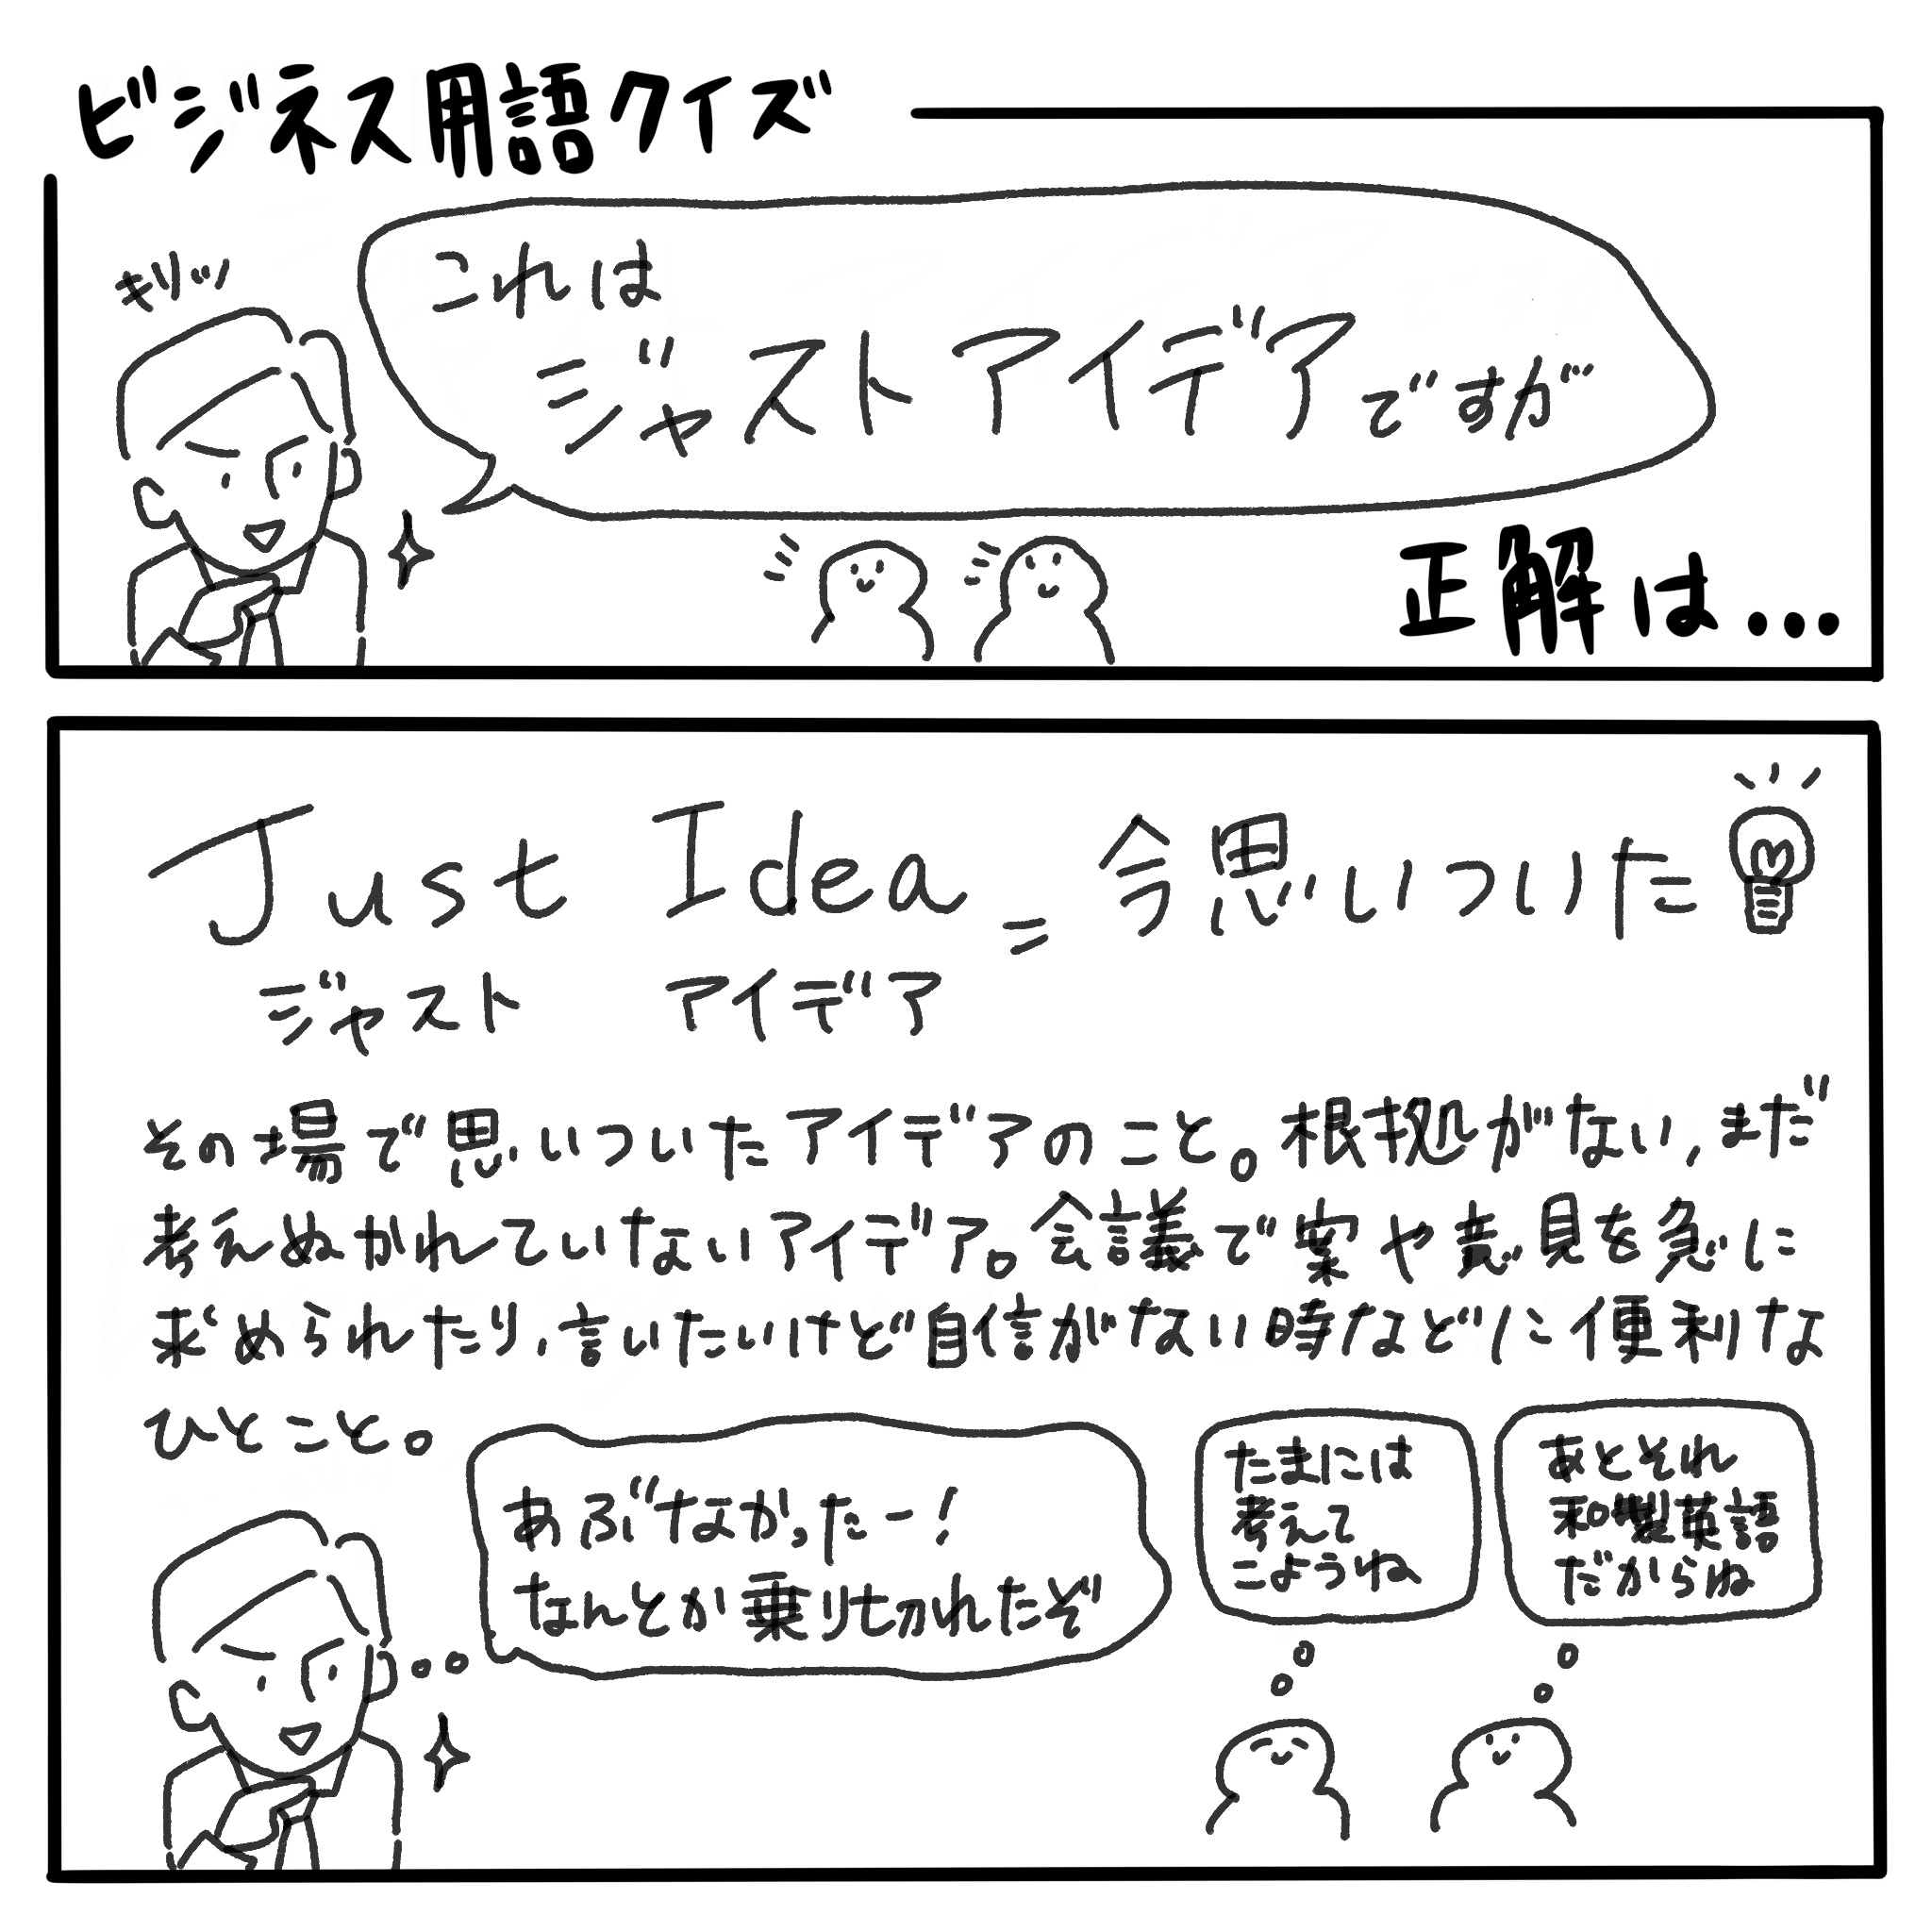 ビジネス用語クイズ
キリッ
これは
ジャストアイデアですが
正解は...
Just Idea = 今思いついた
ジャスト アイデア
その場で思いついたアイデアのこと。根拠がない、まだ
考えぬかれていないアイデア。会議で案や意見を急に
求められたり、言いたいけど自信がない時などに便利な
ひとこと。
あぶなかったー!
なんとか乗り切れたぞ
たまには
考えて
こようね
あとそれ
和製英語
だからね